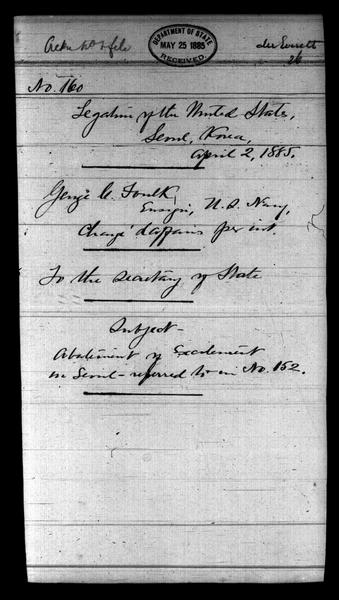 DEPARTMENT OF STATE
MAY 25 1885
RECEIVED
Mr Everett
26
No. 160
Legation of the United States,
Seoul, Korea,
April 2, 1885.
George C. Foulk,
Ensign, U.S. Navy,
Chargé d'affaires per int.
To the Secretary of State
Subject—
Abatement of Excitement
in Seoul - referred to in No. 152.